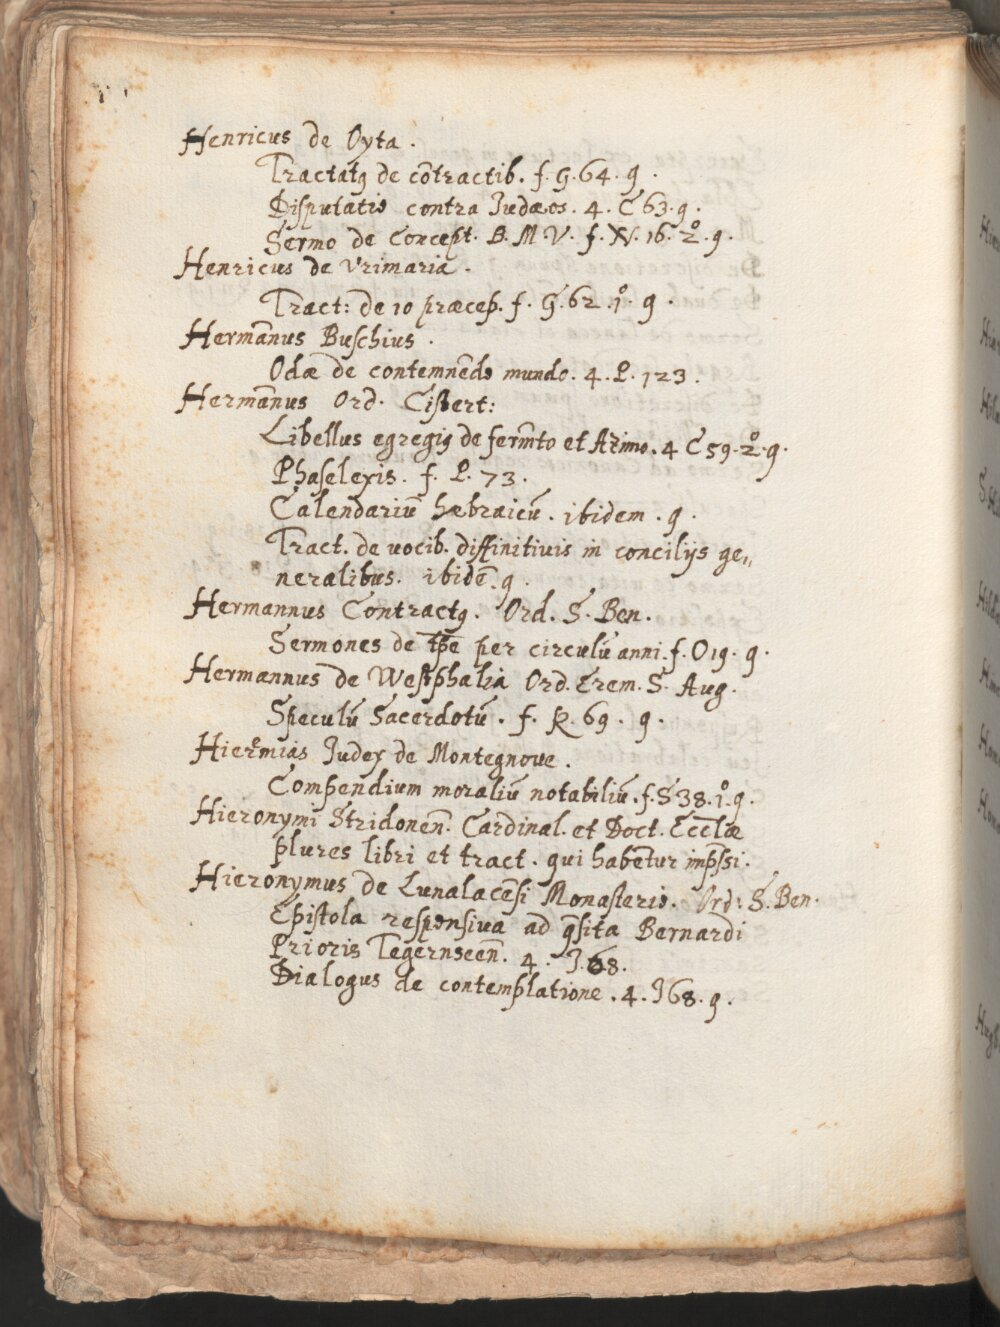 Henricus de Oyta.
Tractatꝯ de cōtractib. f. G. 64. g.
Disputatio contra Judæos. 4. C 63. g.
Sermo de Concept. B. M. V. f. N. 16. 2.º g.
Henricus de Vrimaria.
Tract: de 10 præcep. f. G. 62. 1.º g.
Hermānus Buschius.
Odæ de contemnēdo mundo. 4. P. 123.
Hermānus Ord. Cistert:
Libellus egregiꝯ de ferm̄to et Azimo. 4 C 59. 2.º g.
Phaselexis. f. P. 73.
Calendariū hæbraicū. ibidem. g.
Tract. de uocib. diffinitiuis in concilijs ge„
neralibus. ibidē. g.
Hermannus Contractꝯ. Ord. S. Ben.
Sermones de tp̄e per circulū anni. f. O 19. g.
Hermannus de Westphalia Ord. Erem. S. Aug.
Speculū Sacerdotū. f. R. 69. g.
Hieremias Judex de Montegnoue.
Compendium moraliū notabiliū. f. S 38. 1.º g.
Hieronymi Stridonen̄. Cardinal. et Doct. Eccl̄æ
plures libri et tract. qui habētur imp̄ssi.
Hieronymus de Lunalacēsi Monasterio. Ord: S. Ben.
Epistola responsiua ad q̄sita Bernardi
Prioris Tegernseen̄. 4. J. 68.
Dialogus de contemplatione. 4. J 68. g.